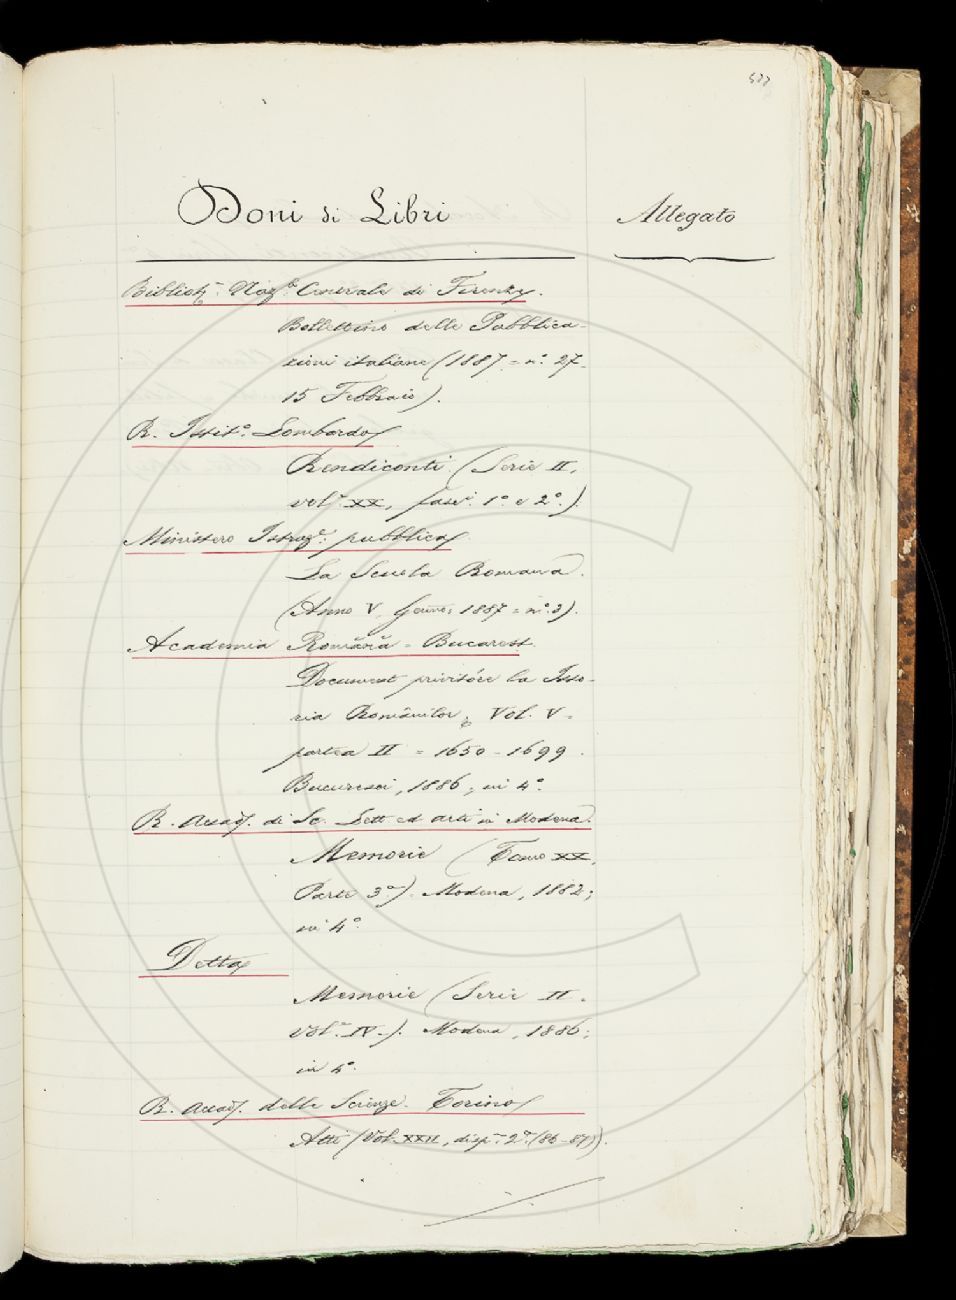 Doni di Libri
Allegato
Bibliot. Naz.e Centrale di Firenze.
Bollettino delle Pubblica-
zioni italiane (1887 = n.° 27-
15 Febbraio).
R. Istit.° Lombardo
Rendiconti (Serie II,
vol.e XX, fasci. 1.° e 2.°).
Ministero Istruz.e pubblica
La Scuola Romana.
(Anno V, 1887 = n.° 3).
Academia Română = Bucarest
Document privitóre la Isto-
ria Românilor, Vol. V =
partea II = 1650-1699.
Bucuresci, 1886, in 4.°
R. Accad. di Sc. Lett. ed arti in Modena.
Memorie (Tomo XX,
Parte 3.a). Modena, 1882;
in 4.°
Detta
Memorie (Serie II.
vol.e IV-). Modena, 1886;
in 4.°
R. Accad. delle Scienze. Torino
Atti (Vol. XXII, disp. 2.a (86-87)).